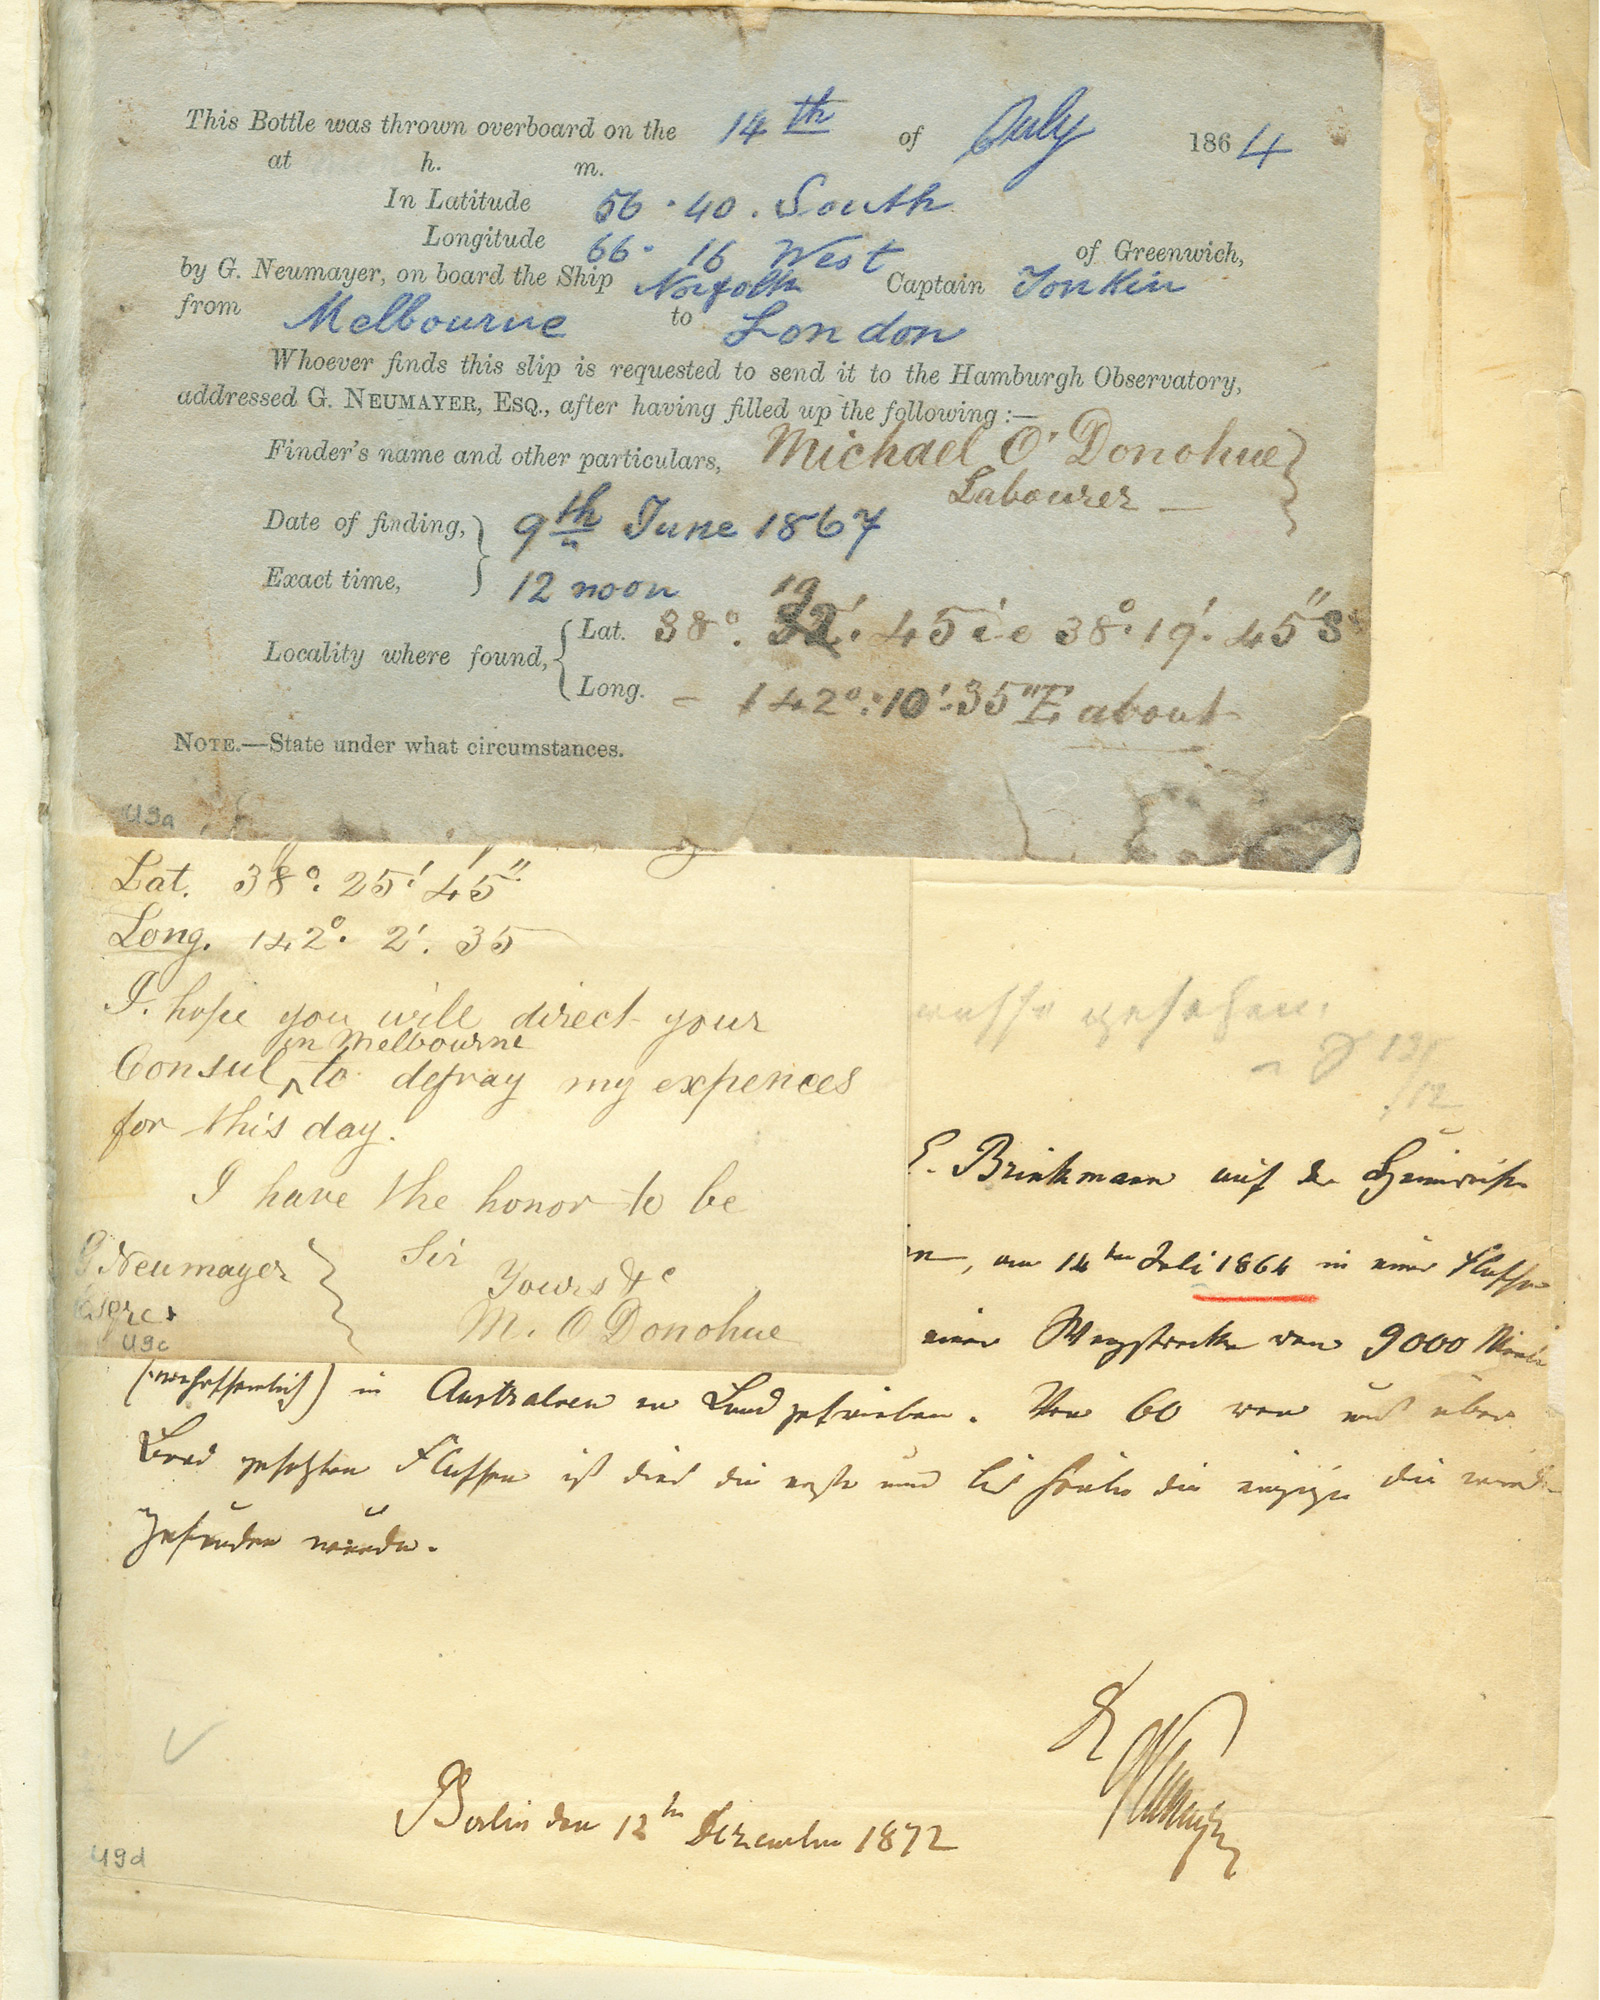 This Bottle was thrown overboard on the 14th of July 1864
at h. m.
In Latitude 56 · 40 . South
Longitude 66 · 16 West of Greenwich,
by G. Neumayer, on board the Ship Norfolk Captain Tonkin
from Melbourne to London
Whoever finds this slip is requested to send it to the Hamburgh Observatory,
addressed G. NEUMAYER, ESQ., after having filled up the following :—
Finder's name and other particulars, Michael O'Donohue
Labourer —
Date of finding, 9th June 1867
Exact time, 12 noon
19
Locality where found, Lat. 38°. 32'. 45 i e 38°. 19'. 45" S
Long. – 142°. 10'. 35" E about
NOTE.—State under what circumstances.
U9a
Lat. 38°. 25' 45"
Long. 142°. 2'. 35
I hope you will direct your
in Melbourne
Consul ^ to defray my expences
for this day.
I have the honor to be
Sir
G Neumayer
Yours &c
M. O'Donohue
U9c
gesehen.
E. Brinkmann auf der Heimreise
am 14ten Juli 1864 in einer Flasche
einer Wegstrecke von 9000
(wahrscheinlich) in Australien an Land getrieben. Von 60 von mir über
Bord gesetzten Flaschen ist dies die erste und bis heute die einzige die wieder
gefunden wurde.
Berlin den 12ten Dezember 1872
U9d